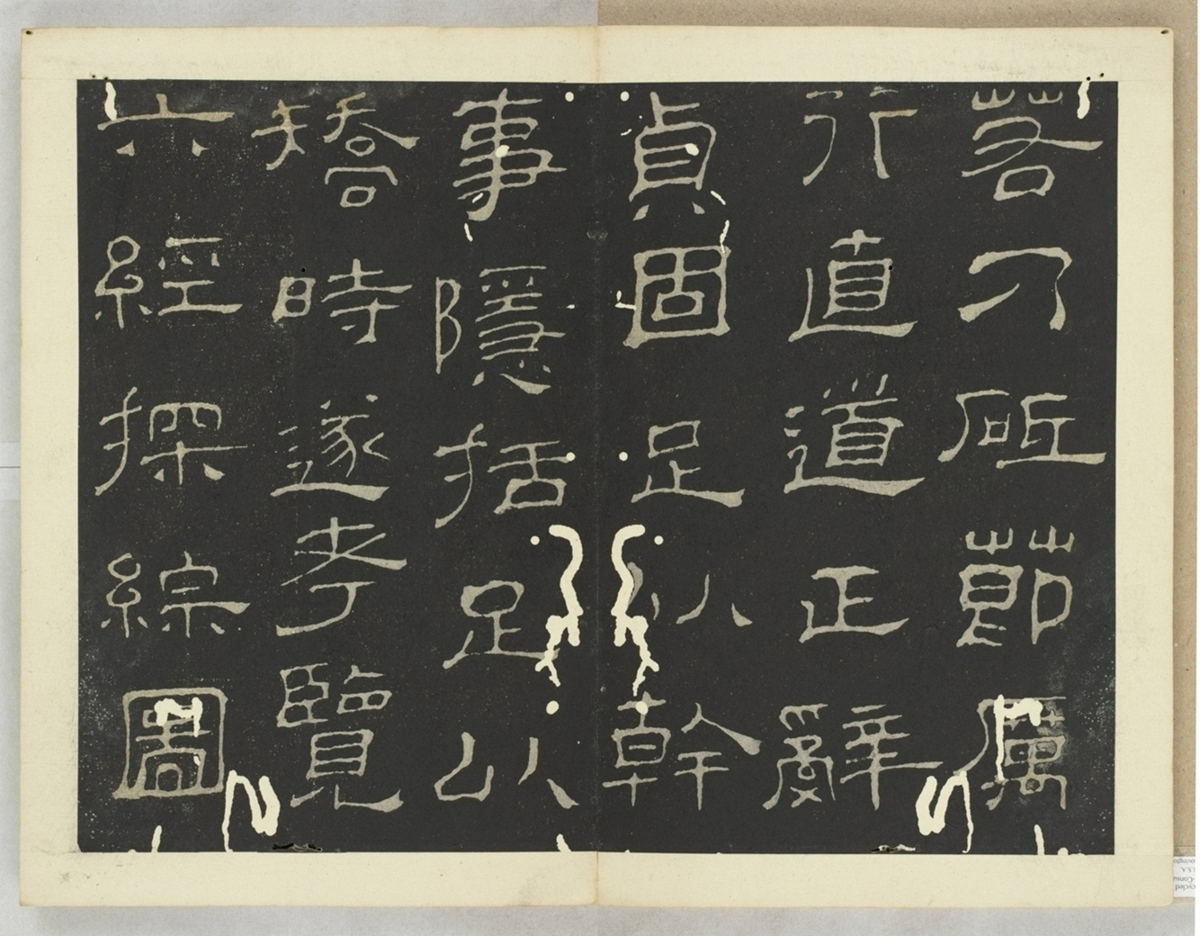 若乃砥節厲
行直道正辭
貞固足以幹
事隱括足以
矯時遂考覽
六經探綜圖